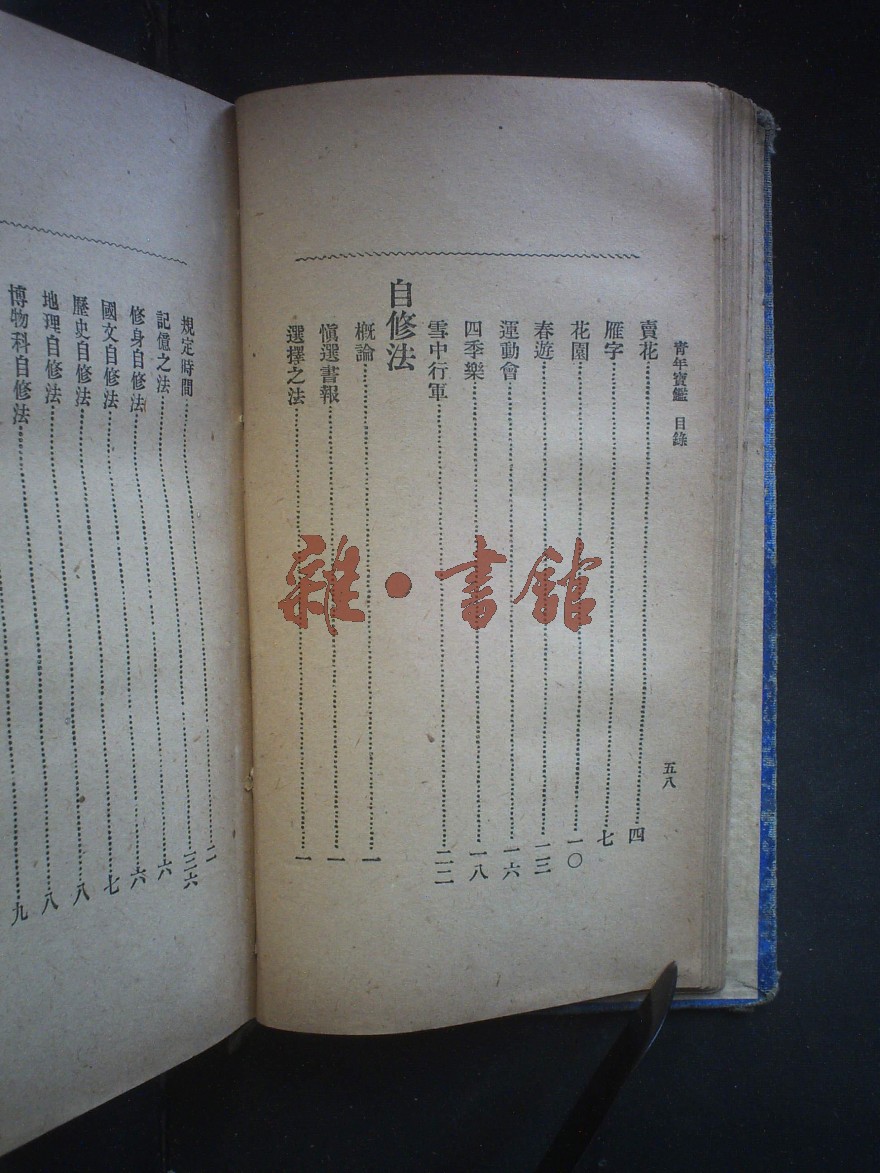 青年寶鑑 目錄 五八
賣花 四
雁字 七
花園 一〇
春遊 一三
運動會 一六
四季樂 一八
雪中行軍 二二
自修法
概論 一
慎選書報 一
選擇之法 一
規定時間 二
記憶之法 三六
修身自修法 六
國文自修法 六
歷史自修法 七
地理自修法 八
博物科自修法 八
九
雜·書館